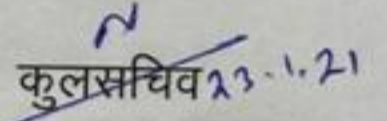 कुलसचिव 23.1.21